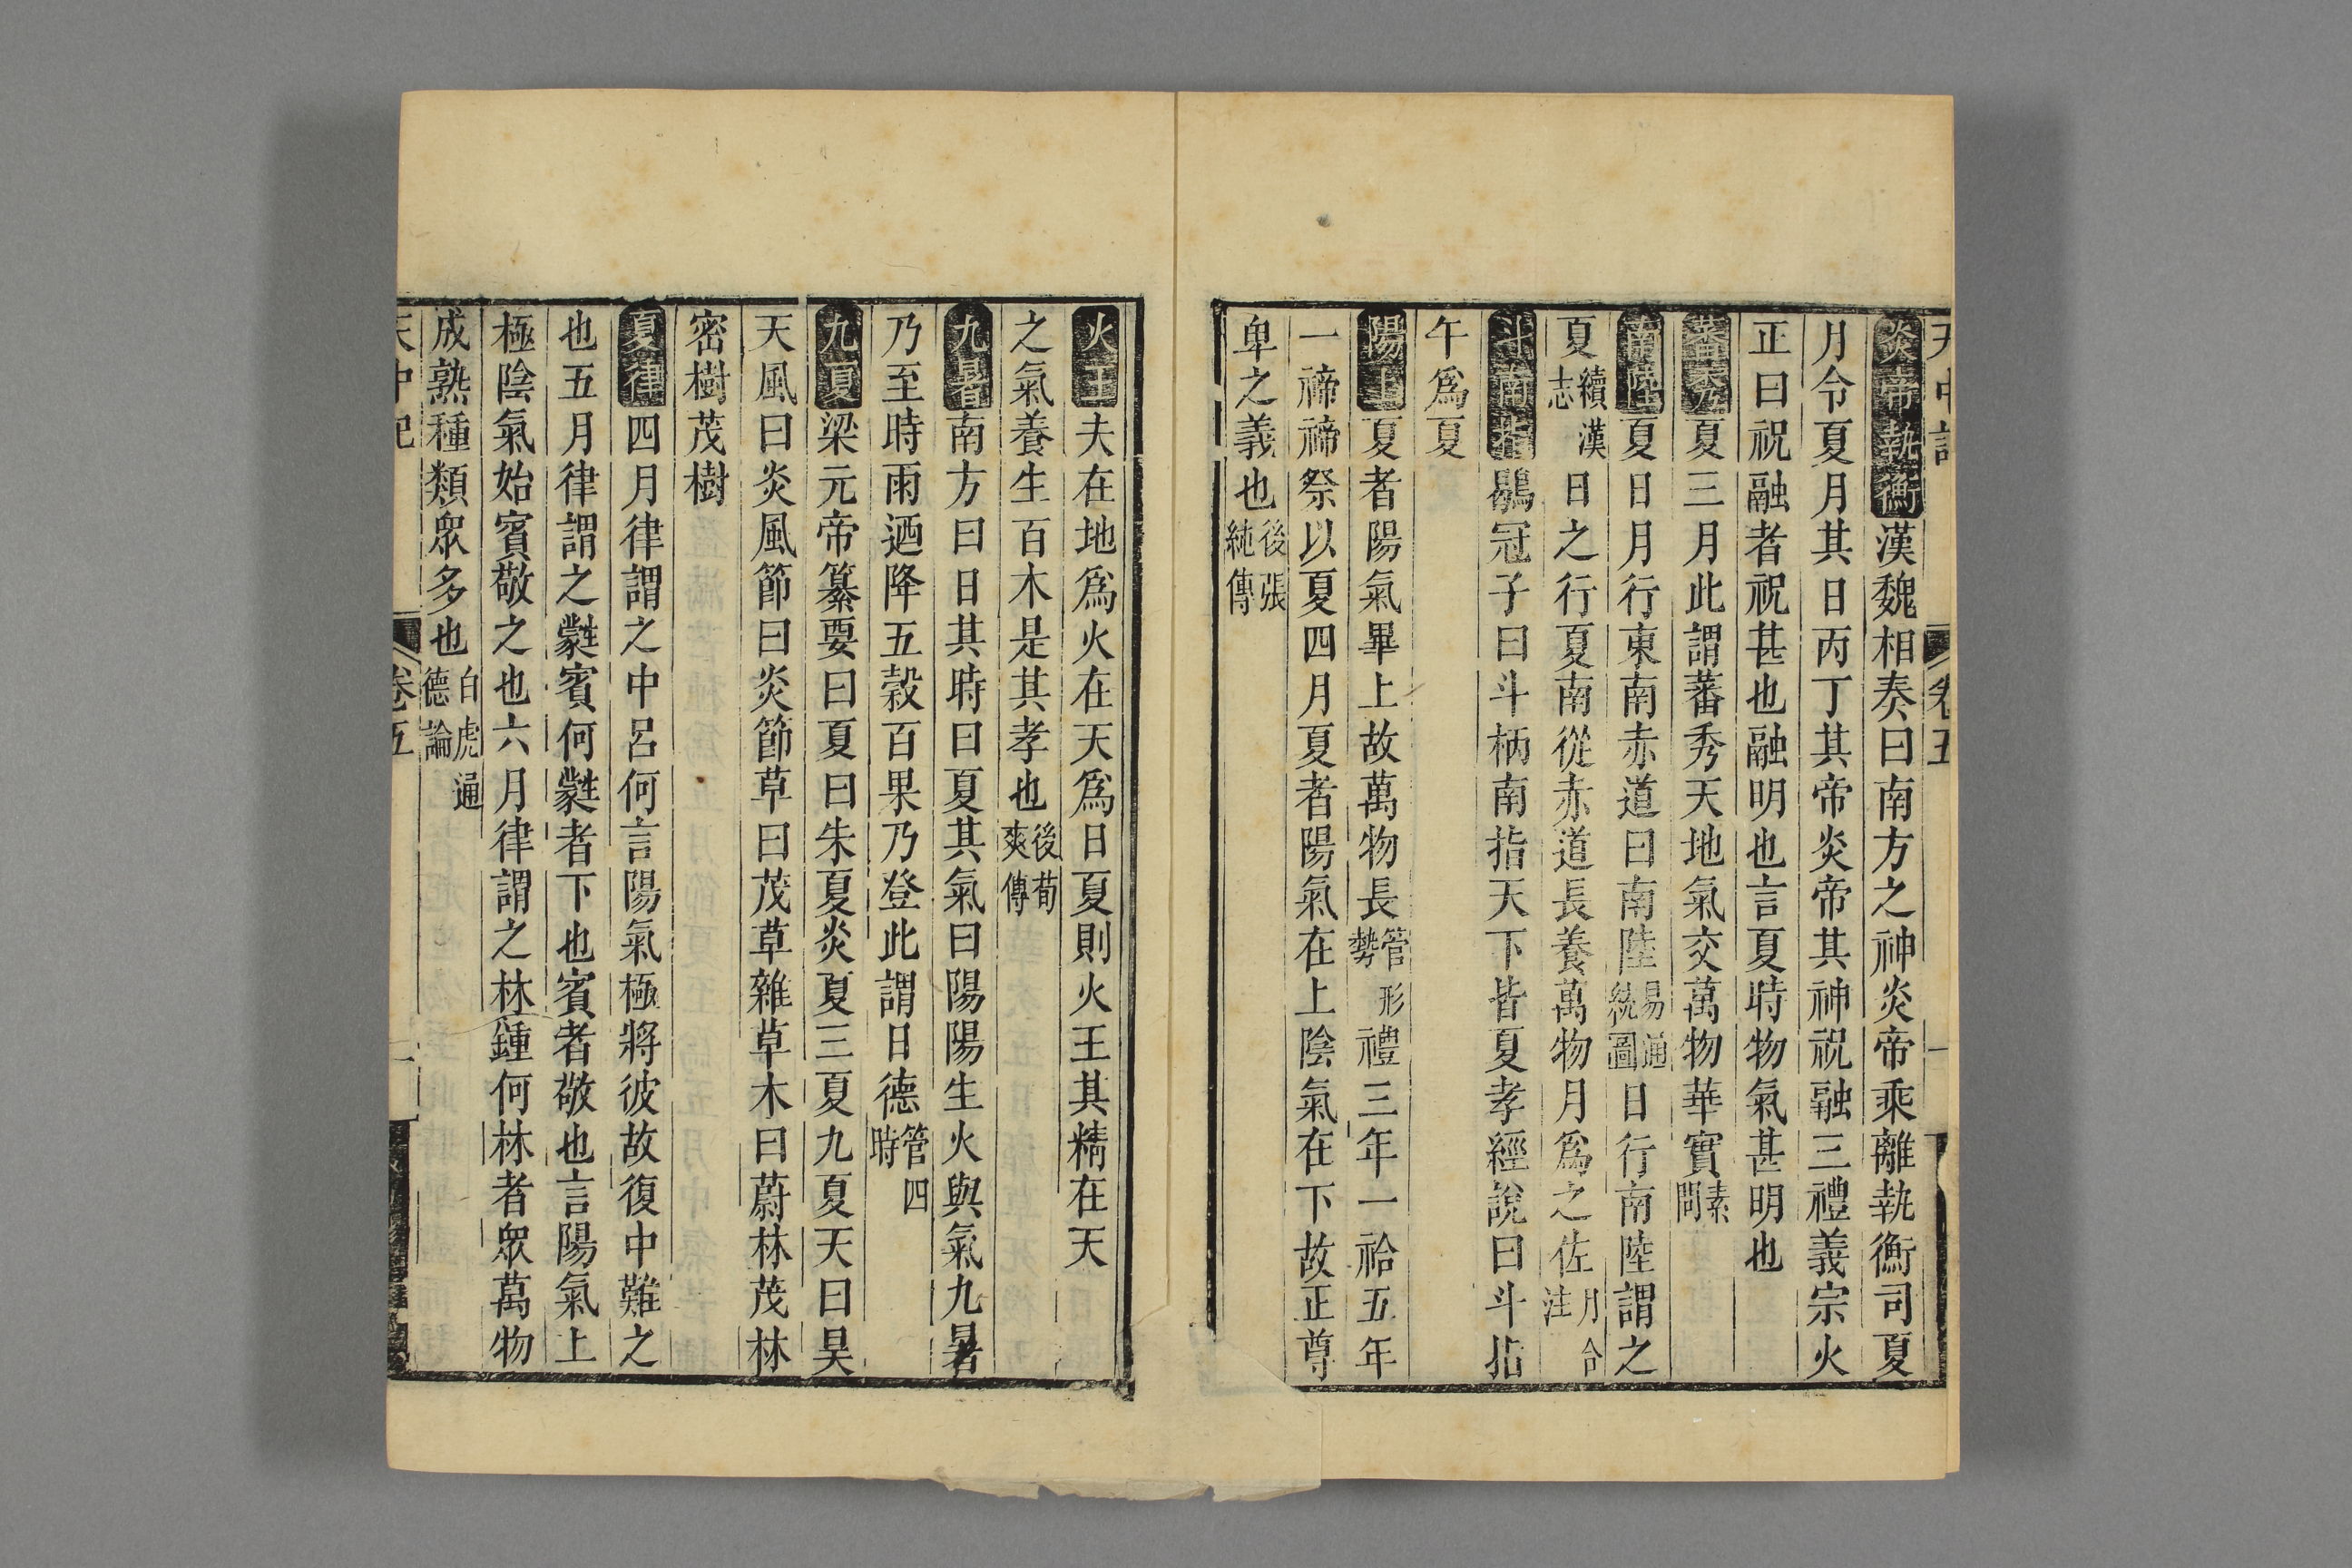 天中記 卷五 一
炎帝執衡漢魏相奏曰南方之神炎帝乘離執衡司夏
月令夏月其日丙丁其帝炎帝其神祝融三禮義宗火
正曰祝融者祝甚也融明也言夏時物氣甚明也
蕃秀夏三月此謂蕃秀天地氣交萬物華實素問
南陸夏日月行東南赤道曰南陸易通統圖日行南陸謂之
夏續漢志日之行夏南從赤道長養萬物月爲之佐月令注
斗南指鶡冠子曰斗柄南指天下皆夏孝經說曰斗指
午爲夏
陽上夏者陽氣畢上故萬物長管形勢禮三年一祫五年
一禘禘祭以夏四月夏者陽氣在上陰氣在下故正尊
卑之義也後張純傳
火王夫在地爲火在天爲日夏則火王其精在天
之氣養生百木是其孝也後荀爽傳
九暑南方曰日其時曰夏其氣曰陽陽生火與氣九暑
乃至時雨迺降五榖百果乃登此謂日德管四時
九夏梁元帝纂要曰夏曰朱夏炎夏三夏九夏天曰昊
天風曰炎風節曰炎節草曰茂草雜草木曰蔚林茂林
密樹茂樹
夏律四月律謂之中呂何言陽氣極將彼故復中難之
也五月律謂之蕤賓何蕤者下也賓者敬也言陽氣上
極陰氣始賓敬之也六月律謂之林鍾何林者衆萬物
成熟種類衆多也白虎通德論
天中記 卷五 二